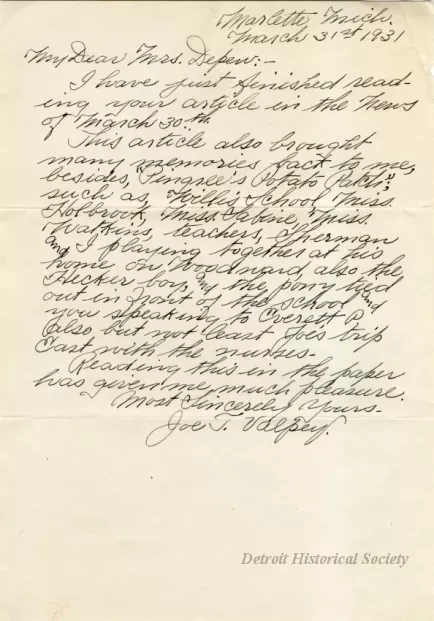 Marlette Mich.
March 31st 1931
My Dear Mrs. Depew:-
I have just finished read-
ing your article in the News
of March 30th.
This article also brought
many memories back to me,
besides, "Pingree's Potato Patch",
such as, Willis School, Miss.
Holbrook, Miss. Sabine, Miss.
Watkins, teachers, Sherman
and I playing together at his
home on Woodward, also the
Hecker boy, and the pony tied
out in front of the school and
you speaking to Everett P
also but not least Joes trip
East with the nurses-
Reading this in the paper
has given me much pleasure.
Most Sincerely Yours-
Joe T. Valpey.
Detroit Historical Society